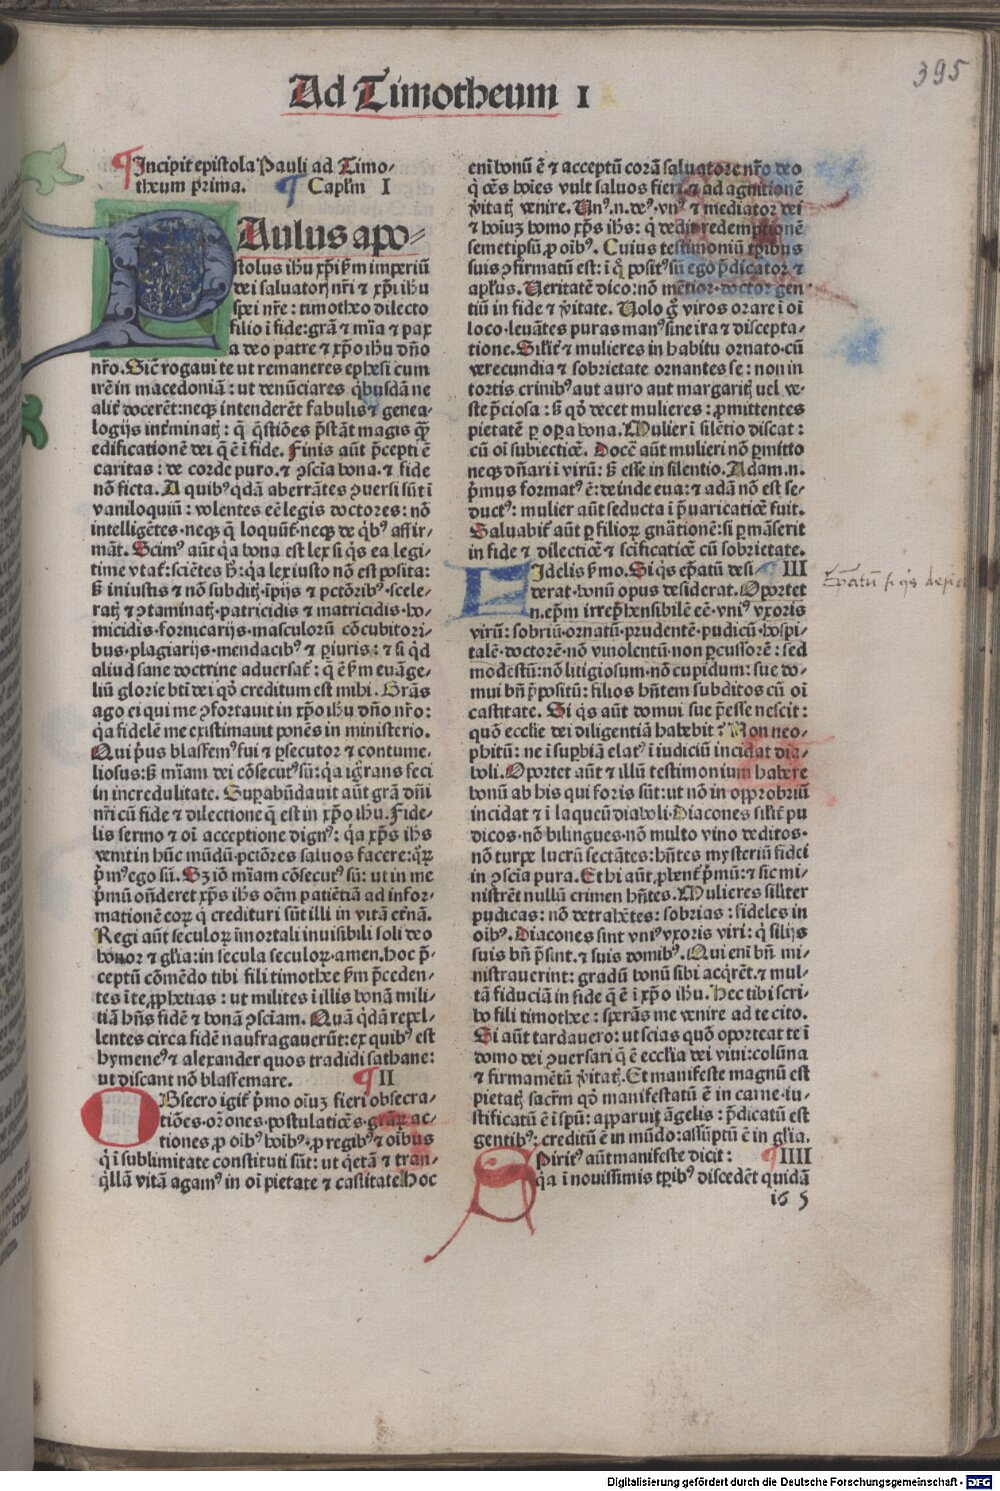 395
Ad Timotheum I
¶Incipit epistola Pauli ad Timo-
theum prima. ¶ Caplm I
PAulus apo-
stolus ihu xpi s̄m imperiū
dei saluatoris nr̄i ⁊ xp̄i ihu
spei nr̄e: timotheo dilecto
filio ī fide: grā ⁊ mīa ⁊ pax
a deo patre ⁊ xp̄o ihu dn̄o
nr̄o. Sic̄ rogaui te ut remaneres ephesi cum
irē in macedoniā: ut denūciares qbusdā ne
alit̄ docerēt: neqꝫ intenderēt fabulis ⁊ genea-
logijs int̄minatꝭ: q̄ q̄stiōes p̄stāt magis qꝫ̄
edificationē dei q̄ ē ī fide. Finis aūt p̄cepti ē
caritas: de corde puro. ⁊ ꝯsciā bona. ⁊ fide
nō ficta. A quibꝰ qdā aberrātes ꝯuersi sūt ī
vaniloquiū: volentes eē legis doctores: nō
intelligētes neqꝫ q̄ loquūt̄ neqꝫ de qbꝰ affir-
māt. Scimꝰ aūt qa bona est lex si qs ea legi-
time vtat̄: sciētes h̄: qa lex iusto nō est posita:
sꝫ iniustis ⁊ nō subditꝭ. īpijs ⁊ pctōribꝰ. scele-
ratꝭ ⁊ ꝯtaminatꝭ. patricidis ⁊ matricidis. ho-
micidis. fornicarijs. masculorū cōcubitori-
bus. plagiarijs. mendacibꝰ ⁊ ꝑiuris: ⁊ si qd
aliud sane doctrine aduersat̄: q̄ ē s̄m euāge-
liū glorie bti dei qd̄ creditum est mihi. Grās
ago ei qui me ꝯfortauit in xp̄o ihu dn̄o nr̄o:
qa fidelē me existimauit ponēs in ministerio.
Qui p̄us blasfemꝰ fui ⁊ ꝑsecutor ⁊ contume-
liosus: sꝫ mīam dei cōsecutꝰ sū: qa ignrans feci
in incredulitate. Suꝑabūdauit aūt grā dn̄i
nr̄i cū fide ⁊ dilectione q̄ est in xp̄o ihu. Fide-
lis sermo ⁊ oī acceptione dignꝰ: qa xp̄s ihs
venit in hūc mūdū pctōres saluos facere: qꝝ
p̄mꝰ ego sū. Sꝫ iō mīam cōsecutꝰ sū: ut in me
p̄mū on̄deret xp̄s ihs oēm patiētiā ad infor-
mationē eoꝝ q̄ credituri sūt illi in vitā et̄nā.
Regi aūt seculoꝝ īmortali inuisibili soli deo
honor ⁊ glīa: in secula seculoꝝ. amen. Hoc p̄-
ceptū cōmēdo tibi fili timothee s̄m p̄ceden-
tes ī te ꝓphetias: ut milites ī illis bonā mili-
tiā hn̄s fidē ⁊ bonā ꝯsciam. Quā qdā repel-
lentes circa fidē naufragauerūt: ex quibꝰ est
hymeneꝰ ⁊ alexander quos tradidi sathane:
ut discant nō blasfemare. ¶ II
OBsecro igit̄ p̄mo oīuꝫ fieri obsecra-
tiōes. or̄ones. postulatiōes. grāꝝ ac-
tiones ꝓ oībꝰ hoībꝰ. ꝓ regibꝰ ⁊ oībus
q̄ ī sublimitate constituti sūt: ut qetā ⁊ tran-
qllā vitā agamꝰ in oī pietate ⁊ castitate. Hoc
enī bonū ē ⁊ acceptū corā saluatore nr̄o deo
q̄ oēs hoīes vult saluos fieri ⁊ ad agnitionē
v̄itatꝭ venire. Unꝰ. n. deꝰ. vnꝰ ⁊ mediator dei
⁊ hoīuꝫ homo xp̄s ihs: q̄ dedit redemptionē
semetipsū ꝓ oībꝰ. Cuius testimoniū tꝑibus
suis ꝯfirmatū est: ī q̄ positꝰ sū ego p̄dicator ⁊
apl̄us. Ueritatē dico: nō mētior. doctor gen
tiū in fide ⁊ v̄itate. Uolo g̊ viros orare ī oī
loco. leuātes puras manꝰ sine ira ⁊ discepta-
tione. Silit̄ ⁊ mulieres in habitu ornato. cū
verecundia ⁊ sobrietate ornantes se: non in
tortis crinibꝰ aut auro aut margaritꝭ uel ve-
ste p̄ciosa: sꝫ qd̄ decet mulieres: ꝓmittentes
pietatē ꝑ oꝑa bona. Mulier ī silētio discat:
cū oī subiectiōe. Docē aūt mulieri nō ꝑmitto
neqꝫ dn̄ari ī virū: sꝫ esse in silentio. Adam. n.
p̄mus formatꝰ ē: deinde eua: ⁊ adā nō est se-
ductꝰ: mulier aūt seducta ī p̄uaricatiōe fuit.
Saluabit̄ aūt ꝑ filioꝝ gn̄ationē: si ꝑmāserit
in fide ⁊ dilectiōe ⁊ sc̄ificatiōe cū sobrietate.
FIdelis s̄mo. Si qs ep̄atū desi- ¶ III
derat. bonū opus desiderat. Oportet
. n. ep̄m irrep̄hensibilē eē. vniꝰ vxoris
virū: sobriū. ornatū. prudentē. pudicū. hospi-
talē. doctorē. nō vinolentū. non ꝑcussorē: sed
modestū: nō litigiosum. nō cupidum: sue do-
mui bn̄ p̄positū: filios hn̄tem subditos cū oī
castitate. Si qs aūt domui sue p̄esse nescit:
quō ecclie dei diligentiā habebit? Non neo-
phitū: ne ī suꝑbiā elatꝰ ī iudiciū incidat dia-
boli. Oportet aūt ⁊ illū testimonium habere
bonū ab his qui foris sūt: ut nō in opprobriū
incidat ⁊ ī laqueū diaboli. Diacones silit̄ pu
dicos. nō bilingues. nō multo vino deditos.
nō turpe lucrū sectātes: hn̄tes mysteriū fidei
in ꝯsciā pura. Et hi aūt ꝓbent̄ p̄mū: ⁊ sic mi-
nistrēt nullū crimen hn̄tes. Mulieres siliter
pudicas: nō detrahētes: sobrias: fideles in
oībꝰ. Diacones sint vniꝰ vxoris viri: q̄ filijs
suis bn̄ p̄sint. ⁊ suis domibꝰ. Qui enī bn̄ mi-
nistrauerint: gradū bonū sibi acqrēt. ⁊ mul-
tā fiduciā in fide q̄ ē ī xp̄o ihu. Hec tibi scri-
bo fili timothee: sperās me venire ad te cito.
Si aūt tardauero: ut scias quō oporteat te ī
domo dei ꝯuersari q̄ ē ecclīa dei viui: colūna
⁊ firmamētū v̄itatꝭ. Et manifeste magnū est
pietatꝭ sacrm̄ qd̄ manifestatū ē in carne. iu-
stificatū ē ī sp̄u: apparuit āgelis: p̄dicatū est
gentibꝰ: creditū ē in mūdo: assūptū ē in glīa.
SPiritꝰ aūt manifeste dicit: ¶IIII
qa ī nouissimis tꝑibꝰ discedēt quidā
16 5
Ep̄atum si qs
Digitalisierung gefördert durch die Deutsche Forschungsgemeinschaft - DFG